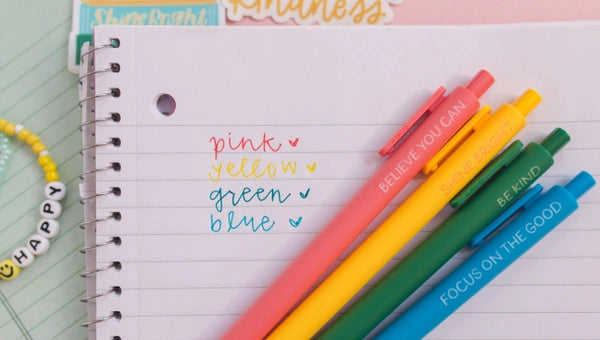 Shine Bright
kindness
pink
yellow
green
blue
BELIEVE YOU CAN
SHINE BRIGHT
BE KIND
FOCUS ON THE GOOD
HAPPY